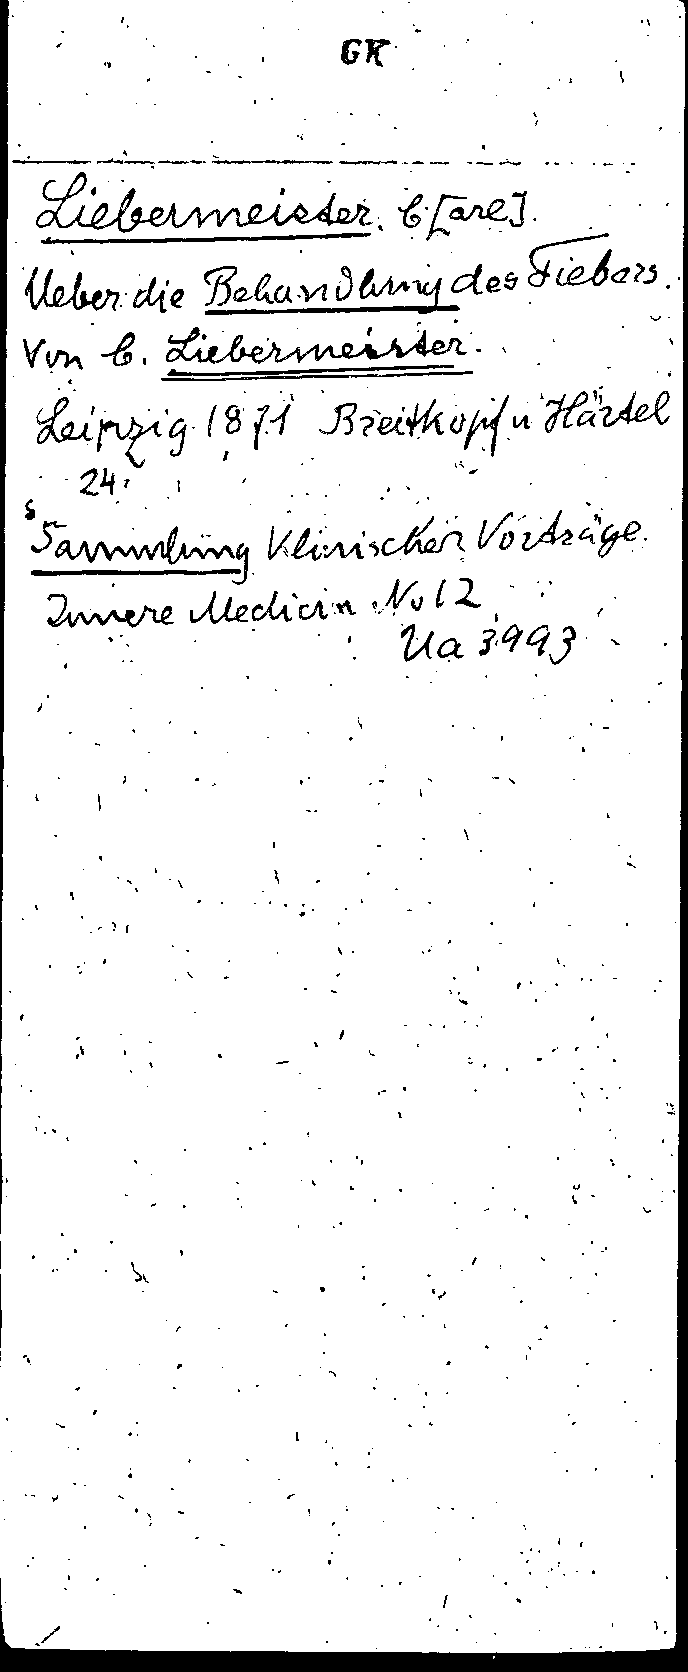 GK
Liebermeister, C[arl].
Ueber die Behandlung des Fiebers.
Von C. Liebermeister.
Leipzig 1871 Breitkopf u Härtel
24.
s
Sammlung Klinischer Vorträge.
Innere Medicin No 12
Ua 3993